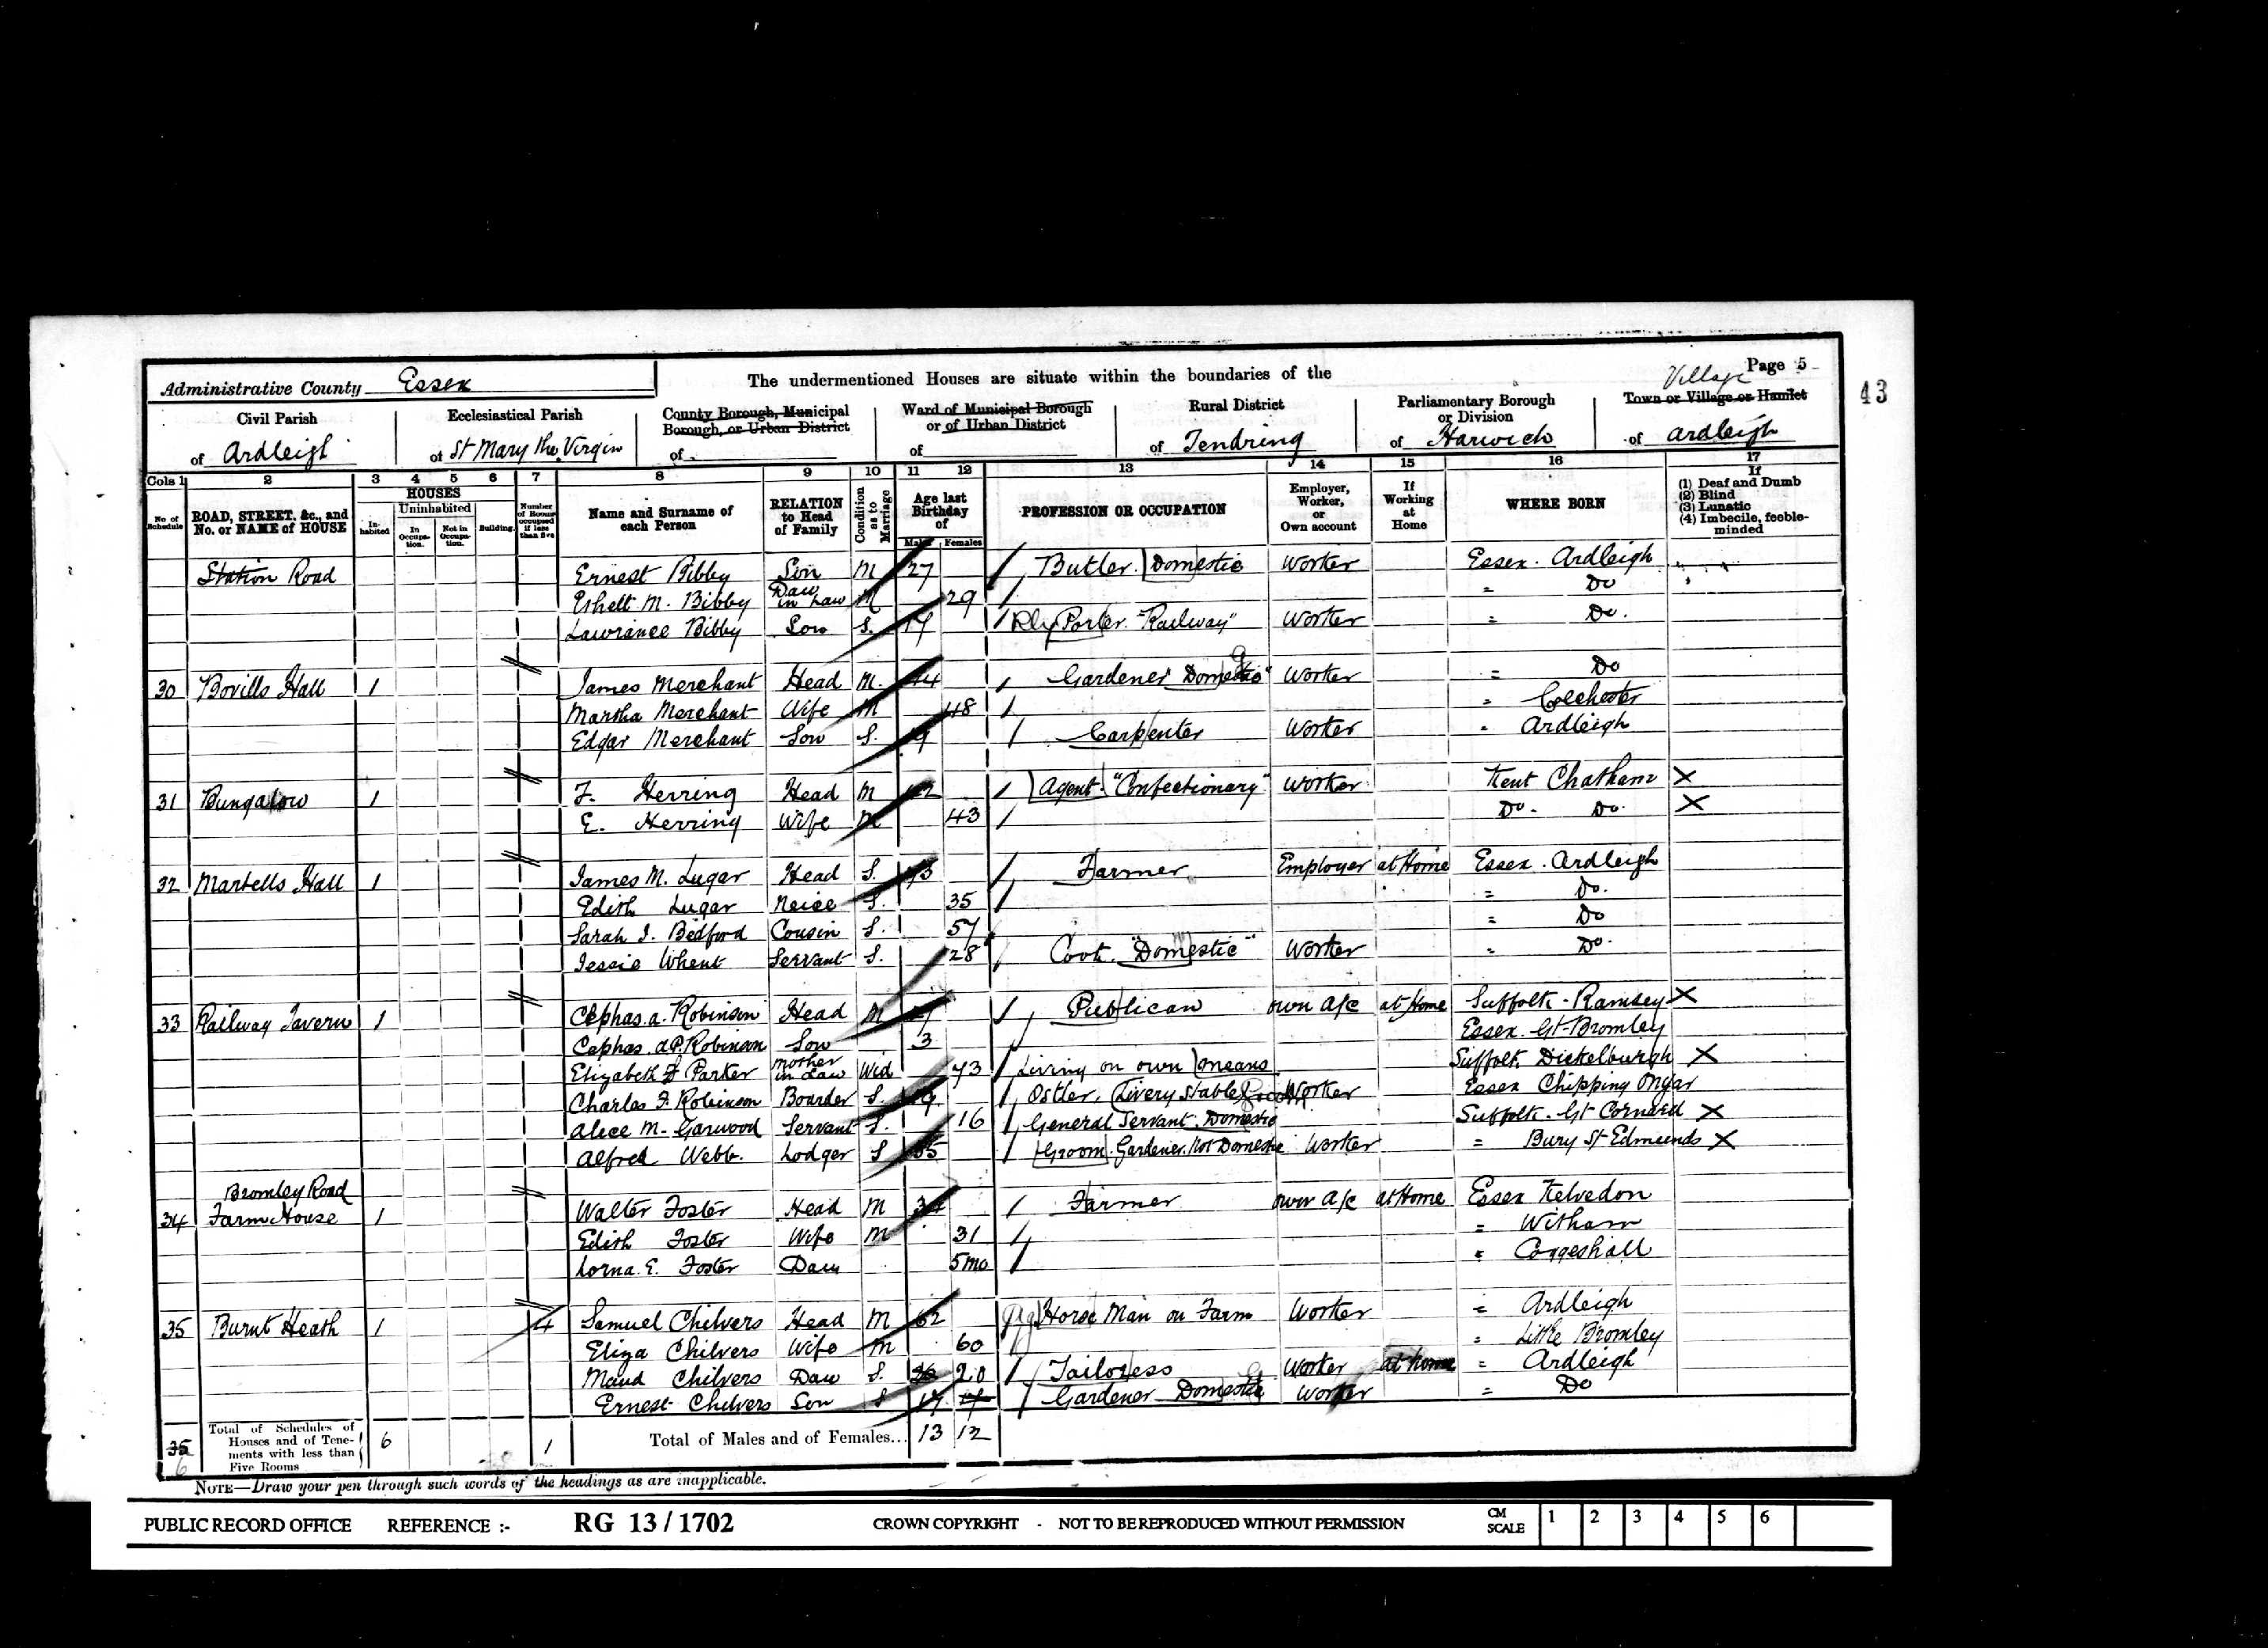 Page 5
43
Administrative County Essex The undermentioned Houses are situate within the boundaries of the
Civil Parish of Ardleigh
Ecclesiastical Parish of St Mary the Virgin
County Borough, Municipal Borough, or Urban District of
Ward of Municipal Borough or of Urban District of
Rural District of Tendring
Parliamentary Borough or Division of Harwich
Village
Town or Village or Hamlet of Ardleigh
Cols 1 2 3 4 5 6 7 8 9 10 11 12 13 14 15 16 17
No of Schedule
ROAD, STREET, &c., and No. or NAME of HOUSE
HOUSES
Inhabited
Uninhabited
In Occupation.
Not in Occupation.
Building.
Number of Rooms occupied if less than five
Name and Surname of each Person
RELATION to Head of Family
Condition as to Marriage
Age last Birthday of
Males Females
PROFESSION OR OCCUPATION
Employer, Worker, or Own account
If Working at Home
WHERE BORN
If
(1) Deaf and Dumb
(2) Blind
(3) Lunatic
(4) Imbecile, feeble-minded
Station Road Ernest Bibby Son M 27 Butler. Domestic Worker Essex. Ardleigh
M. Bibby Daw in Law M 29 = Do
Lawrance Bibby Son S. Rly Porter. "Railway" Worker = Do.
30 Bovills Hall 1 James Merchant Head M. 44 Gardener Domestic Worker = Do
Martha Merchant Wife M 48 = Colchester
Edgar Merchant Son S. Carpenter Worker = Ardleigh
31 Bungalow 1 F. Herring Head M 42 Agent. "Confectionary" Worker Kent Chatham X
E. Herring Wife M 43 Do. Do. X
32 Martells Hall 1 James M. Lugar Head S. Farmer Employer at Home Essex. Ardleigh
Edith Lugar Neice S. 35 = Do.
Sarah J. Bedford Cousin S. 57 = Do
Jessie Whent Servant S. 28 Cook. "Domestic" Worker = Do.
33 Railway Tavern 1 Cephas. A. Robinson Head M Publican own A/c at Home Suffolk - Ramsey X
Cephas. A.P. Robinson Son 3 Essex. Gt-Bromley
Elizabeth F Parker Mother in Law Wid 73 Living on own means Suffolk. Dickelburgh X
Charles F. Robinson Boarder S. 19 Ostler. Livery Stable Groom Worker Essex Chipping Ongar
Alice M. Garwood Servant S. 16 General Servant. Domestic Suffolk. Gt Cornard X
Alfred Webb. Lodger S Groom. Gardener. Not Domestic Worker = Bury St Edmunds X
Bromley Road
34 Farm House 1 Walter Foster Head M 34 Farmer own A/c at Home Essex Kelvedon
Edith Foster Wife M 31 = Witham
Lorna. E. Foster Daw 5mo = Coggeshall
35 Burnt Heath 1 4 Samuel Chilvers Head M 62 Horse Man on Farm Worker = Ardleigh
Eliza Chilvers Wife M 60 = Little Bromley
Maud Chilvers Daw S. 20 Tailoress Worker at home = Ardleigh
Ernest Chilvers Son S 17 Gardener Domestic Worker = Do
35
6
Total of Schedules of Houses and of Tenements with less than Five Rooms 6 1 Total of Males and of Females... 13 12
NOTE—Draw your pen through such words of the headings as are inapplicable.
PUBLIC RECORD OFFICE REFERENCE :- RG 13 / 1702 CROWN COPYRIGHT - NOT TO BE REPRODUCED WITHOUT PERMISSION CM SCALE 1 2 3 4 5 6